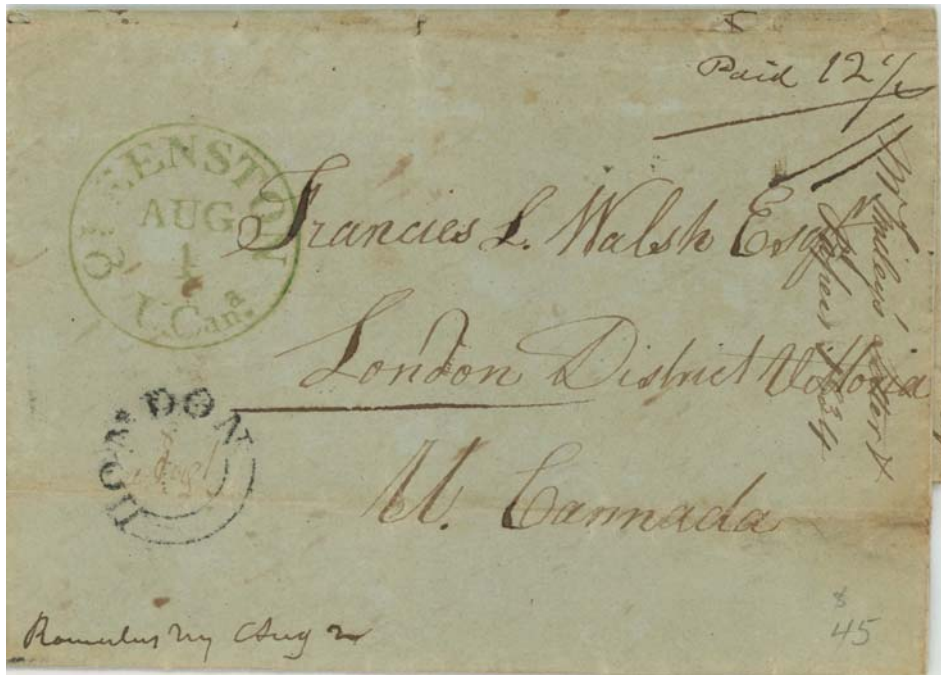 Paid 12½
QUEENSTON
AUG
1
U.Canª.
Francies L. Walsh Esqr
London District Vittoria
U. Cannada
LONDON
Augt
Romulus NY Aug 2
Letter &
1834
$
45